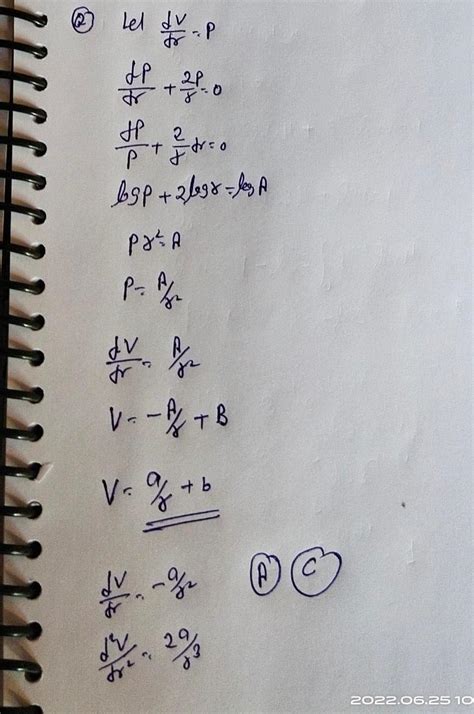 Q Let dV/dr = P
dP/dr + 2P/r = 0
dP/P + 2/r dr = 0
log P + 2 log r = log A
Pr² = A
P = A/r²
dV/dr = A/r²
V = -A/r + B
V = a/r + b
dV/dr = -a/r² A C
d²V/dr² = 2a/r³
2022.06.25 10